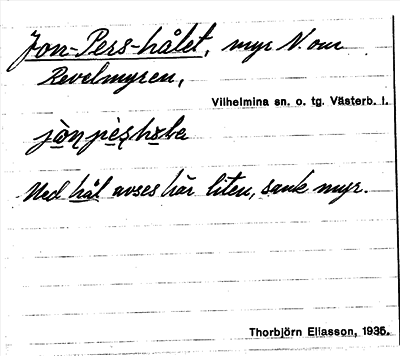 Jon-Pers-hålet, myr N. om
Revelmyren,
Vilhelmina sn. o. tg. Västerb. l.
Med hål avses här liten, sank myr.
Thorbjörn Eliasson, 1935.